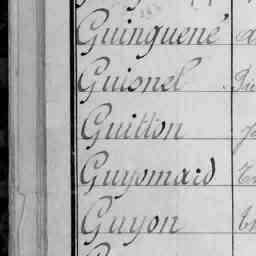 Guinguené
Guionel
Guitton
Guyomard
Guyon